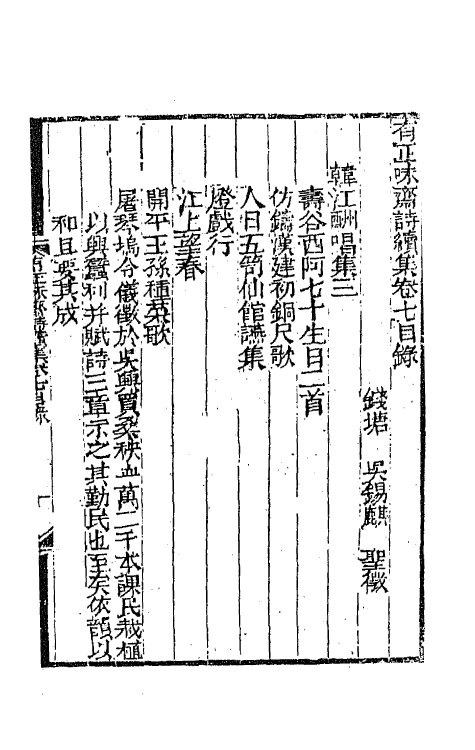 有正味齋詩續集卷七目錄
錢塘 吳錫麒 聖徵
韓江酬唱集三
壽谷西阿七十生日二首
仿鑄漢建初銅尺歌
人日五笥仙館讌集
燈戲行
江上望春
開平王孫種菜歌
屠琴塢令儀徵於吳興買桑秧蓋萬二千本課民栽植
以興蠶利并賦詩三章示之其勤民也至矣依韻以
和且要其成
有正味齋詩續集卷七目錄